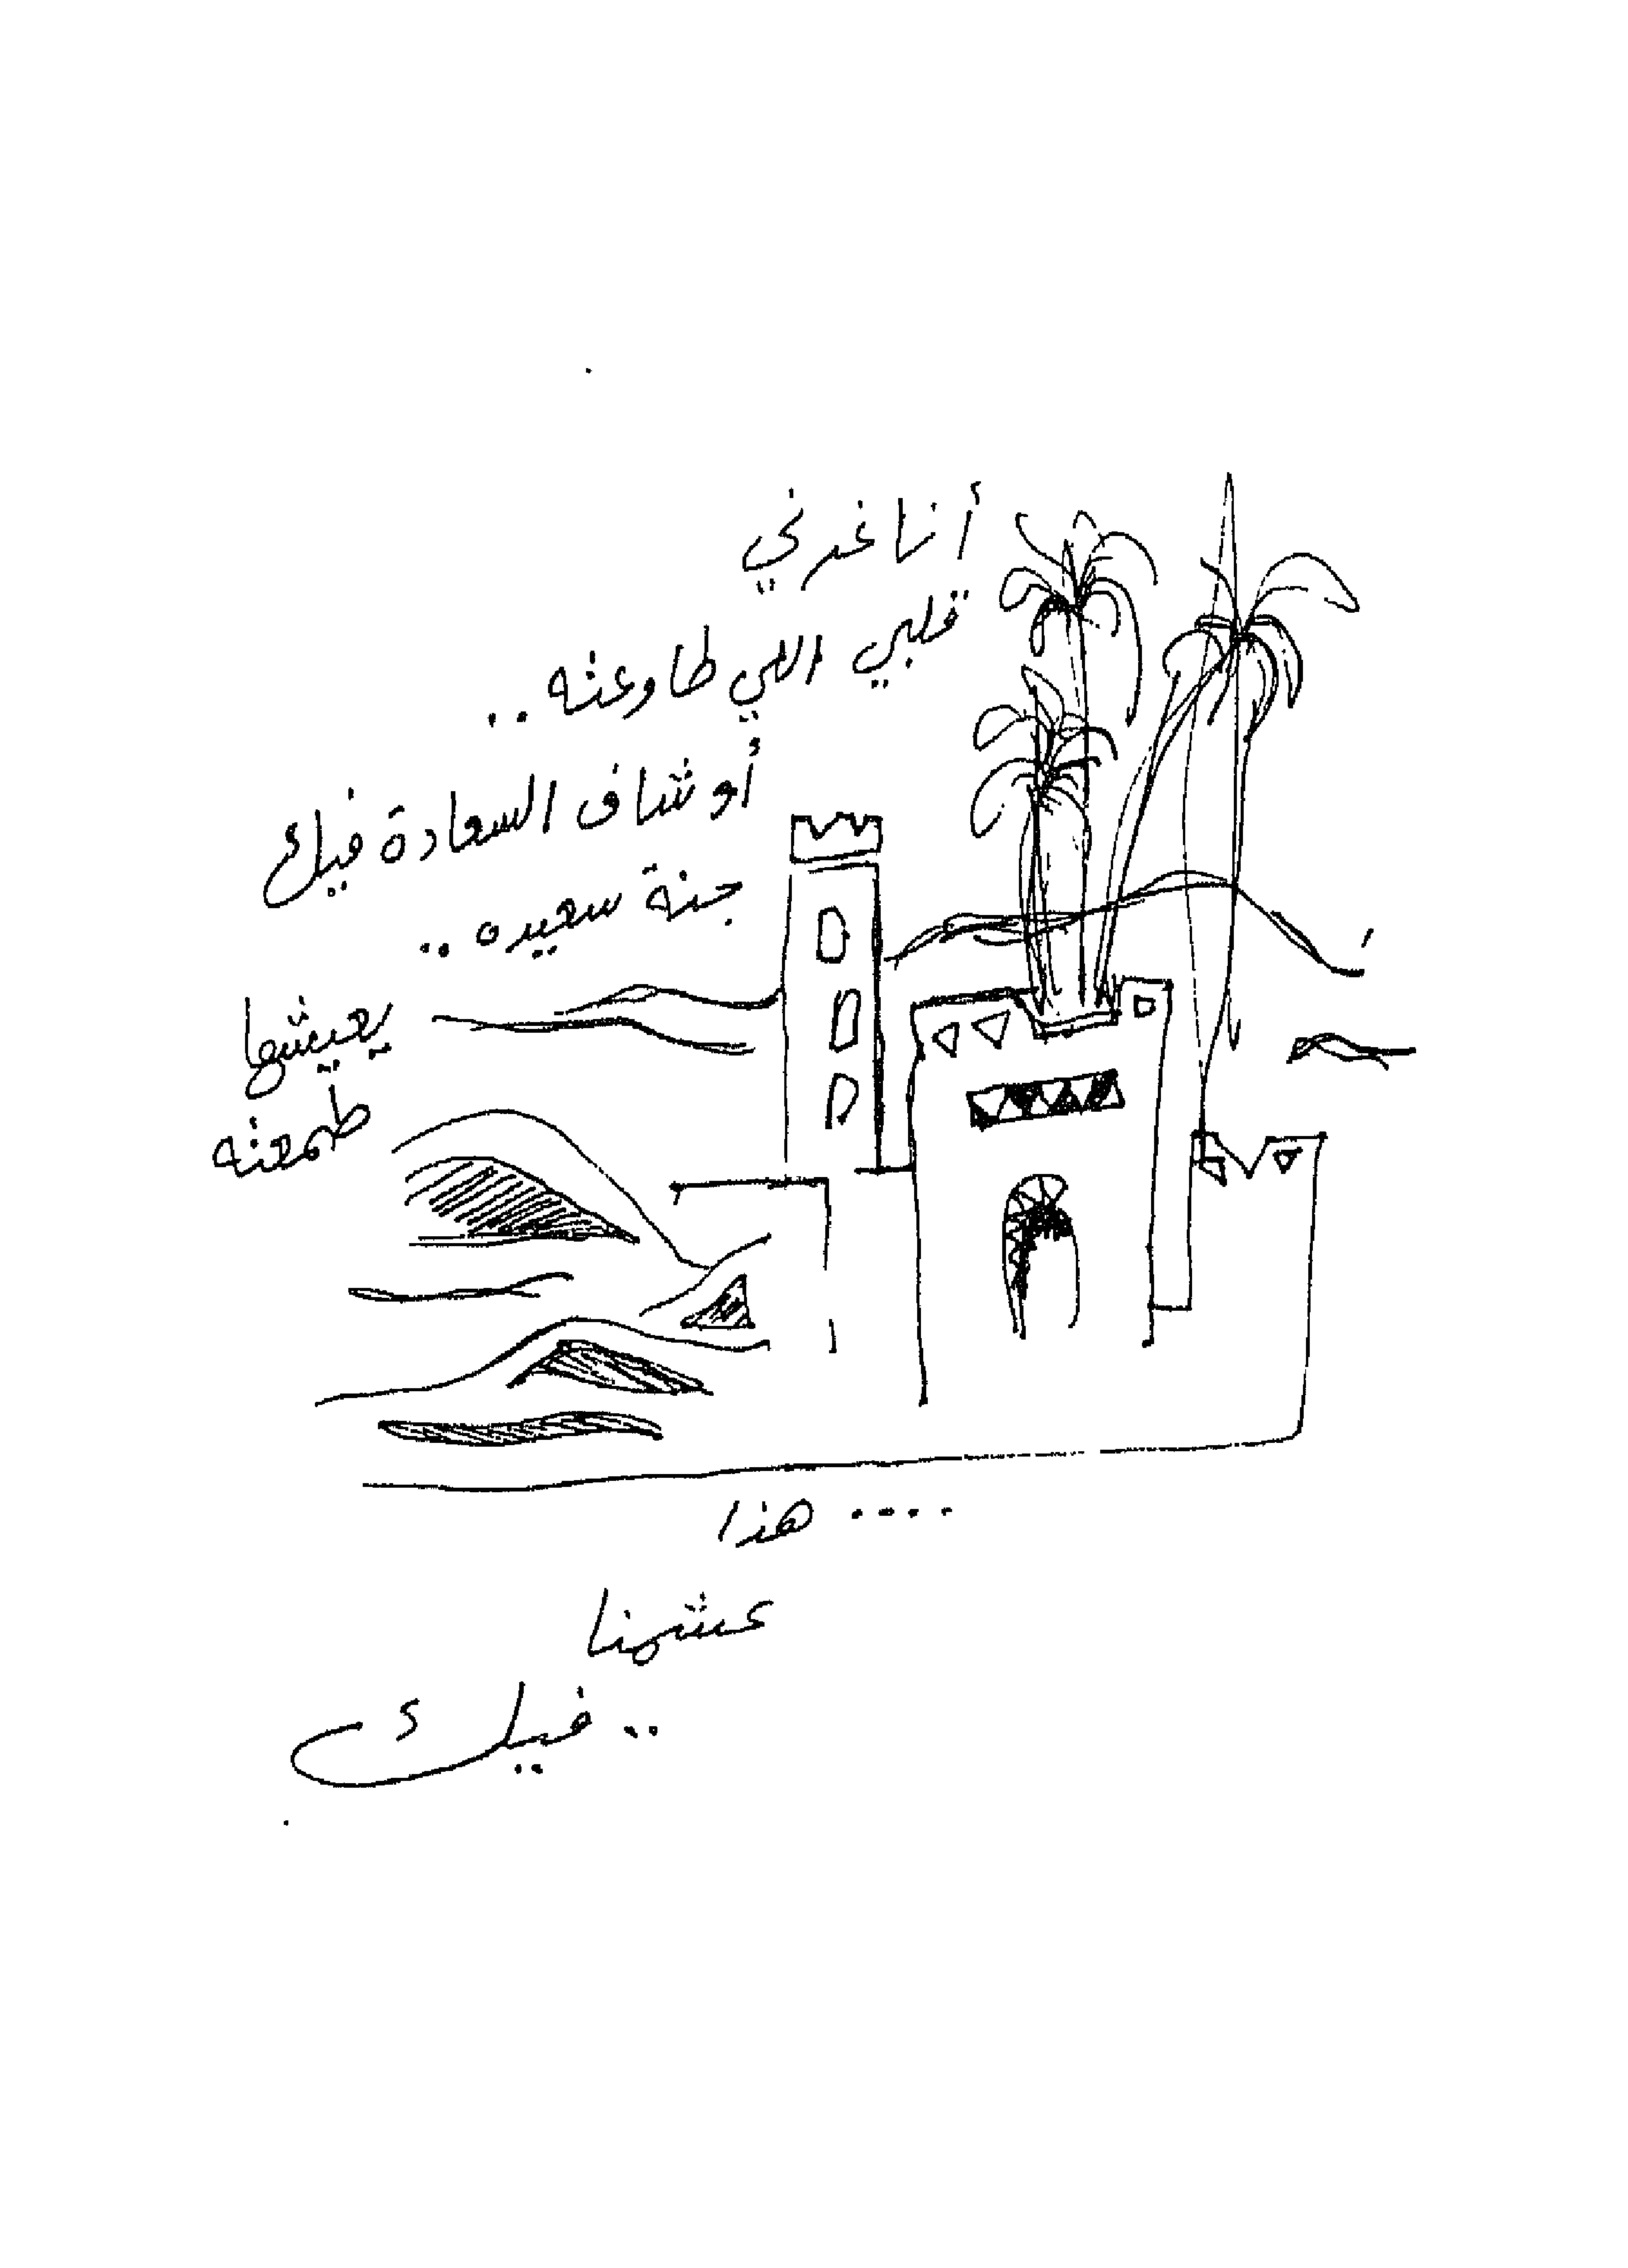 أنا غرني
قلبي اللي طاوعته..
أو شاف السعادة فيك
جنة سعيده ..
يعيشها
طمعته
.... هذا
عشمنا
.. فيك